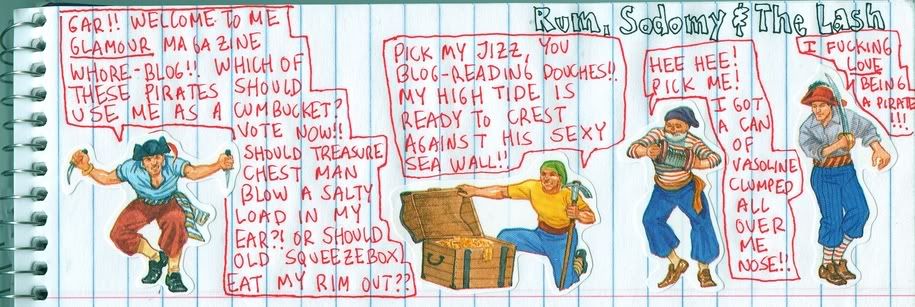 Rum, Sodomy & The Lash
GAR!! WELCOME TO ME
GLAMOUR MAGAZINE
WHORE-BLOG!! WHICH OF
THESE PIRATES SHOULD
USE ME AS A CUMBUCKET?
VOTE NOW!!
SHOULD TREASURE
CHEST MAN
BLOW A SALTY
LOAD IN MY
EAR?! OR SHOULD
OLD SQUEEZEBOX
EAT MY RIM OUT??
PICK MY JIZZ, YOU
BLOG-READING DOUCHES!!
MY HIGH TIDE IS
READY TO CREST
AGAINST HIS SEXY
SEA WALL!!
HEE HEE!
PICK ME!
I GOT
A CAN
OF
VASOLINE
CLUMPED
ALL
OVER
ME
NOSE!!
I FUCKING
LOVE
BEING
A PIRATE
!!!